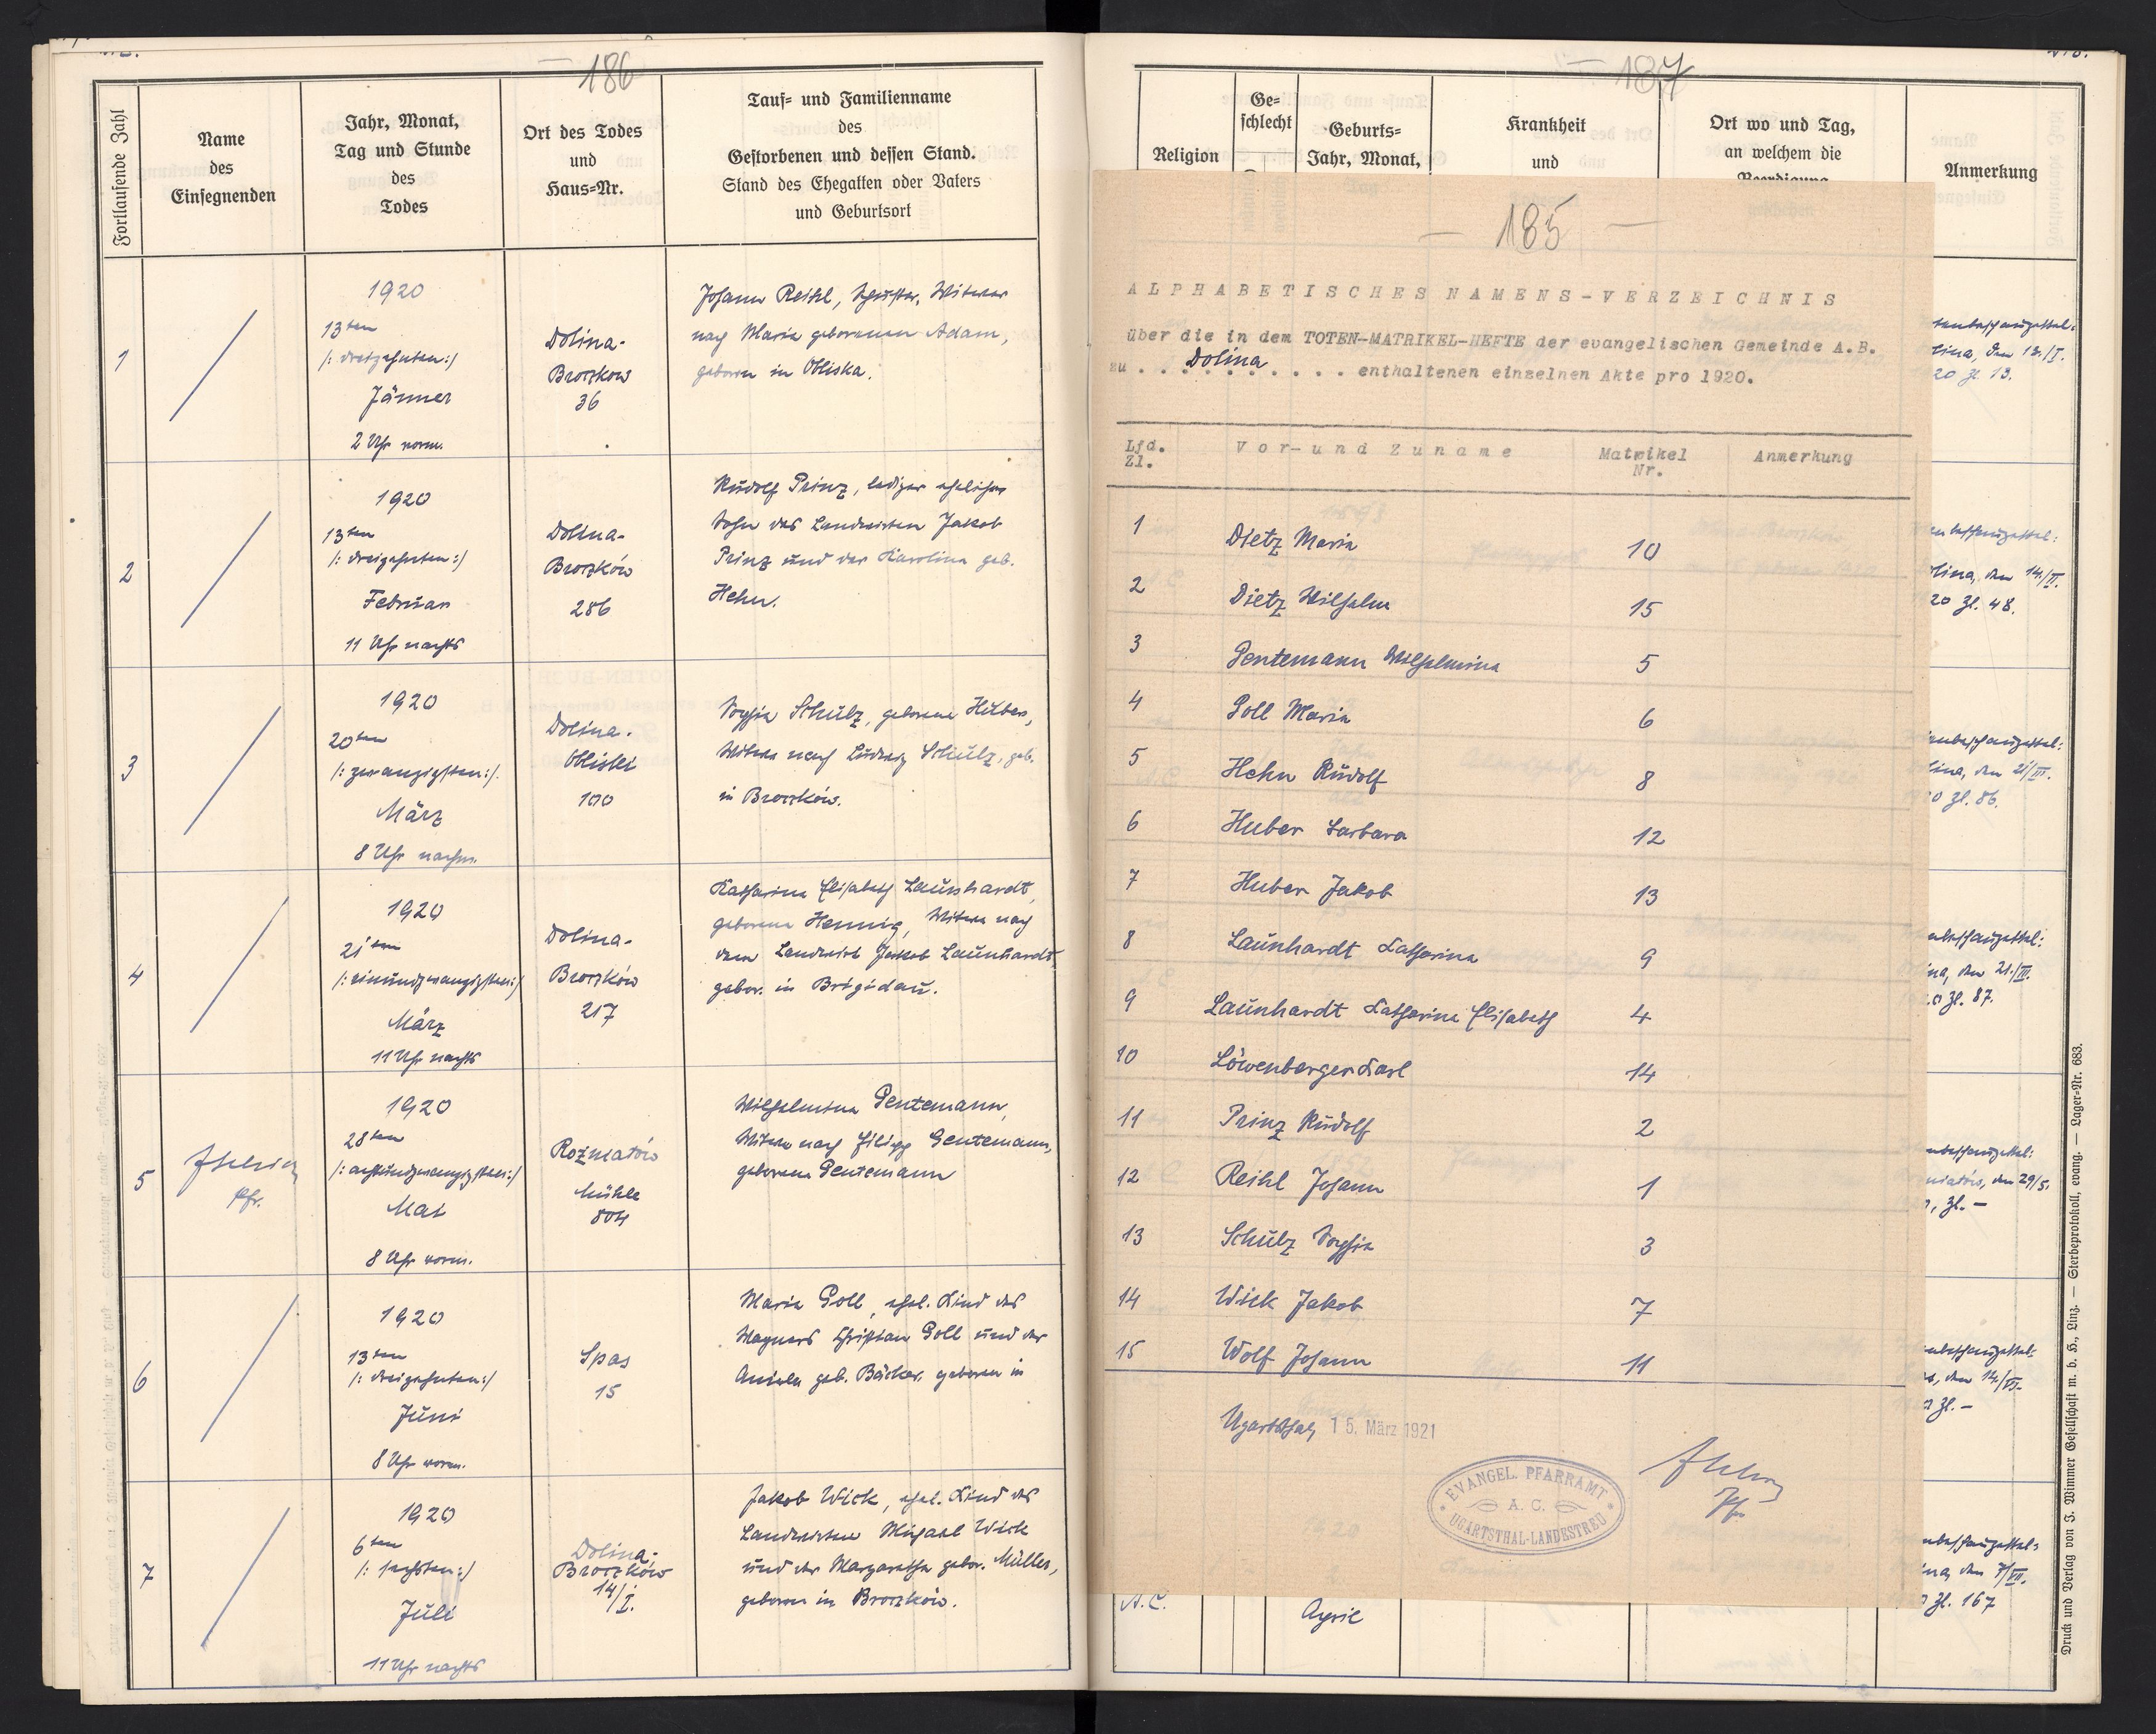 186
Fortlaufende Zahl
Name
des
Einsegnenden
Jahr, Monat,
Tag und Stunde
des
Todes
Ort des Todes
und
Haus=Nr.
Tauf= und Familienname
des
Gestorbenen und dessen Stand.
Stand des Ehegatten oder Vaters
und Geburtsort
1
1920
13ten
/: dreizehnten :/
Jänner
2 Uhr vorm.
Dolina-
Broczkow
36
Johann Reihl, Schuster, Witwer
nach Maria geborenen Adam,
geboren in Obliska.
2
1920
13ten
/: dreizehnten :/
Februar
11 Uhr nachts
Dolina-
Broczków
286
Rudolf Prinz, lediger ehelicher
Sohn des Landwirten Jakob
Prinz und der Karolina geb.
Hehn.
3
1920
20ten
/: zwanzigsten :/.
März
8 Uhr nachm.
Dolina-
Obliski
100
Sophia Schulz, geborene Huber,
Witwe nach Ludwig Schulz, geb.
in Broczków.
4
1920
21ten
/: einundzwanzigsten :/
März
11 Uhr nachts
Dolina-
Broczków
217
Katharina Elisabeth Launhardt,
geborene Hennig, Witwe nach
dem Landwirt Jakob Launhardt,
gebor. in Brigidau.
5
Pfr.
1920
28ten
/: achtundzwanzigsten :/
Mai
8 Uhr vorm.
Rozniatów
Mühle
804
Wilhelmina Gentemann,
Witwe nach Filipp Gentemann,
geborene Gentemann
6
1920
13ten
/: dreizehnten :/
Juni
8 Uhr vorm.
Spas
15
Maria Goll, ehel. Kind des
Wagners Christian Goll und der
Aniela geb. Bäcker, geboren in
7
1920
6ten
/: sechsten :/
Juli
11 Uhr nachts
Dolina-
Broczków
14/I.
Jakob Wick, ehel. Kind des
Landwirten Michael Wick
und der Margaretha gebor. Müller,
geboren in Broczków.
187
Religion
Ge=
schlecht
Geburts=
Jahr, Monat,
Krankheit
und
Ort wo und Tag,
an welchem die
Beerdigung
Anmerkung
– 185 –
ALPHABETISCHES NAMENS-VERZEICHNIS
über die in dem TOTEN-MATRIKEL-HEFTE der evangelischen Gemeinde A.B.
zu . . . Dolina . . . . . . enthaltenen einzelnen Akte pro 1920.
Lfd.
Zl.
Vor- und Zuname
Matrikel
Nr.
Anmerkung
1 Dietz Maria 10
2 Dietz Wilhelm 15
3 Gentemann Wilhelmina 5
4 Goll Maria 6
5 Hehn Rudolf 8
6 Huber Barbara 12
7 Huber Jakob 13
8 Launhardt Katharina 9
9 Launhardt Katharina Elisabeth 4
10 Löwenberger Karl 14
11 Prinz Rudolf 2
12 Reihl Johann 1
13 Schulz Sophia 3
14 Wick Jakob 7
15 Wolf Johann 11
Ugartsthal, 15. März 1921
EVANGEL. PFARRAMT
A. C.
UGARTSTHAL-LANDESTREU
Pfr.
A.C.
April
tenbeschauzettel:
lina, den 13./I.
20 Zl. 13.
enbeschauzettel:
lina, den 14./II.
20 Zl. 48.
enbeschauzettel:
lina, den 21/III.
20 Zl. 86.
nbeschauzettel:
ina, den 21./III.
20 Zl. 87.
nbeschauzettel:
niatów, den 29/5.
, Zl. –
nbeschauzettel:
s, den 14./VI.
Zl. –
nbeschauzettel:
ina, den 7/VII.
Zl. 167
Druck und Verlag von J. Wimmer Gesellschaft m. b. H., Linz. — Sterbeprotokoll, evang. — Lager=Nr. 683.